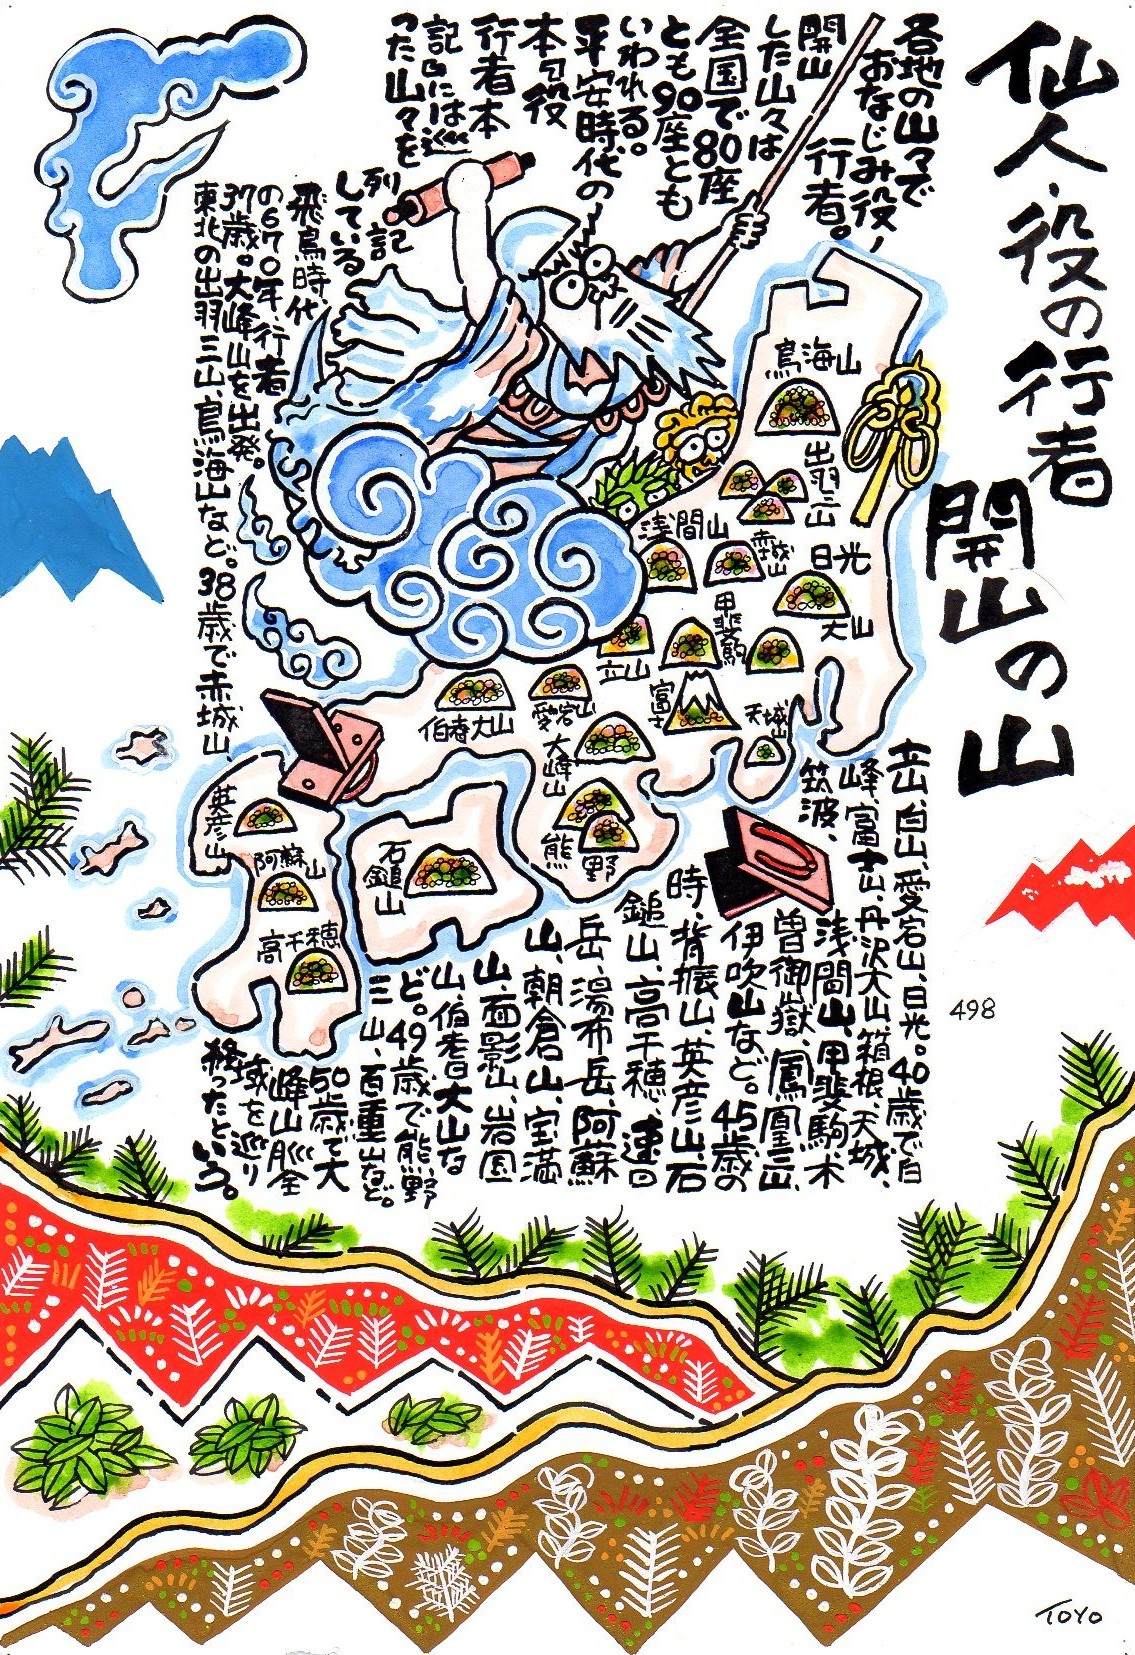 仙人・役の行者
開山の山
各地の山々で
おなじみ役ノ
行者。
開山
した山々は
全国で80座
とも90座とも
いわれる。
平安時代の
本『役
行者本
記』には巡
った山々を
列記
している
飛鳥時代
の670年、行者
37歳。大峰山を出発。
東北の出羽三山、鳥海山など。38歳で赤城山、
立山、白山、愛宕山、日光。40歳で白
峰、富士山、丹沢大山、箱根、天城、
筑波、
浅間山、甲斐駒、木
曽御嶽、鳳凰三山、
伊吹山など。45歳の
時、背振山、英彦山、石
鎚山、高千穂、速日
岳、湯布岳、阿蘇
山、朝倉山、宝満
山、面影山、岩国
山、伯耆大山な
ど。49歳で熊野
三山、百重山など。
50歳で大
峰山脈全
域を巡り
終ったという。
鳥海山
出羽三山
浅間山
赤城山
日光
甲斐駒
大山
立山
富士
天城山
伯耆大山
愛宕山
大峰山
熊野
石鎚山
英彦山
阿蘇山
高千穂
498
TOYO